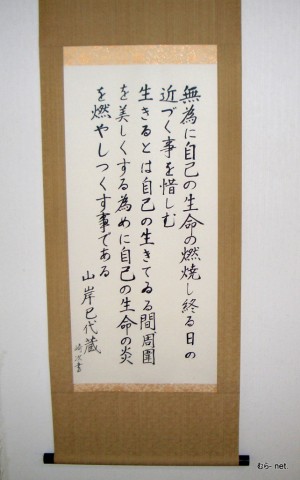 無為に自己の生命の燃焼し終る日の
近づく事を惜しむ
生きるとは自己の生きてゐる間周囲
を美しくする為めに自己の生命の炎
を燃やしつくす事である
山岸巳代蔵
むら-net.